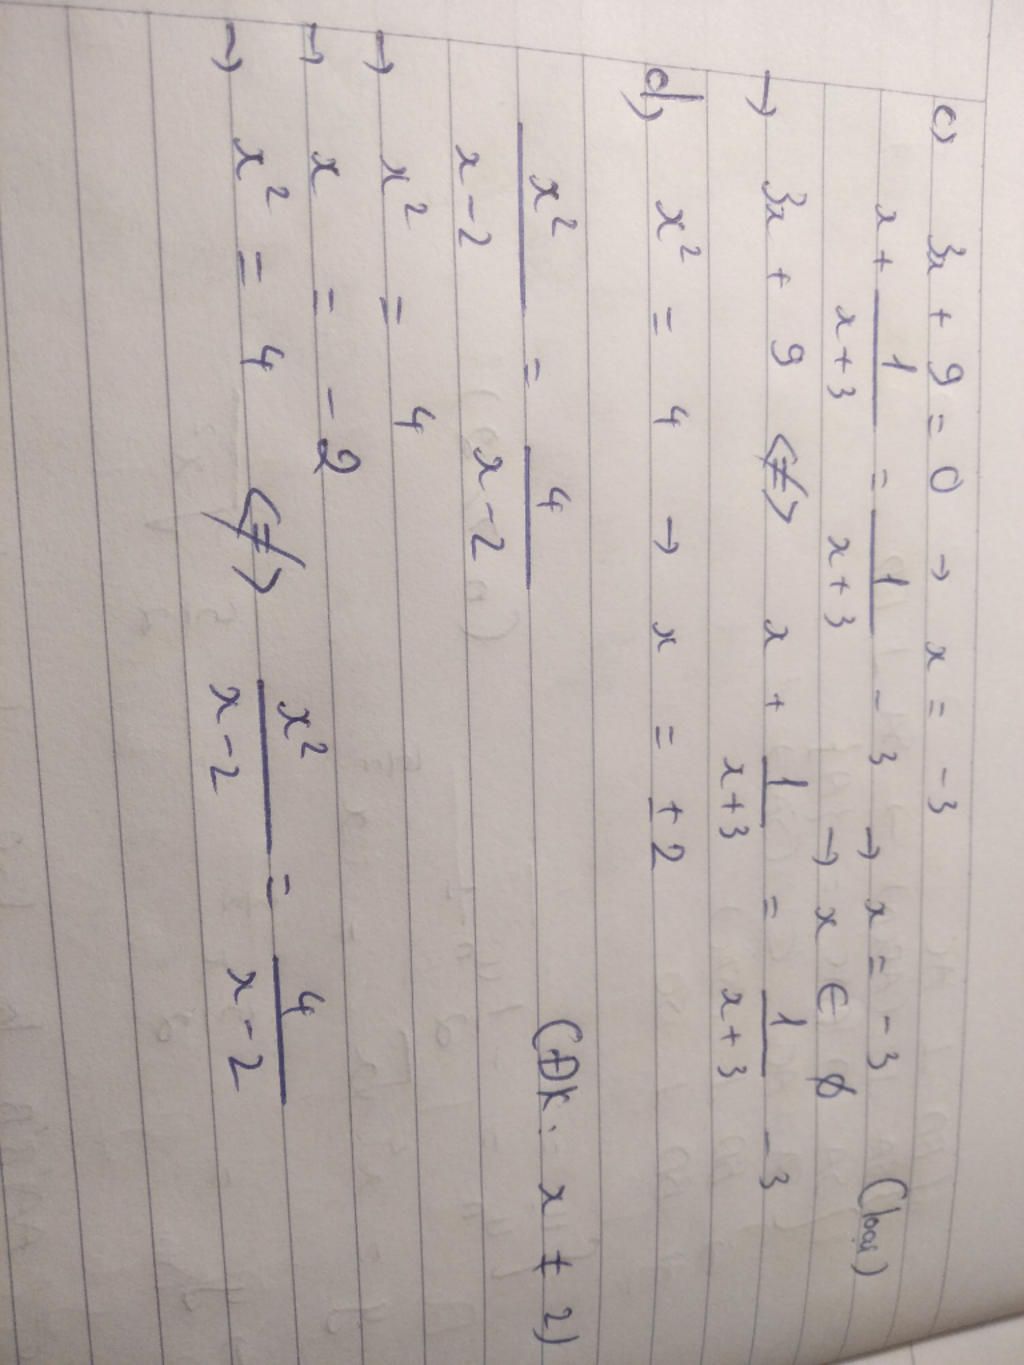 c) 3x + 9 = 0 → x = -3
x + 1/(x+3) = 1/(x+3) - 3 → x = -3 (loại)
→ x ∈ ∅
→ 3x + 9 <≠> x + 1/(x+3) = 1/(x+3) - 3
d) x² = 4 → x = ±2
x²/(x-2) = 4/(x-2) (Đk: x ≠ 2)
→ x² = 4
→ x = -2
→ x² = 4 <≠> x²/(x-2) = 4/(x-2)